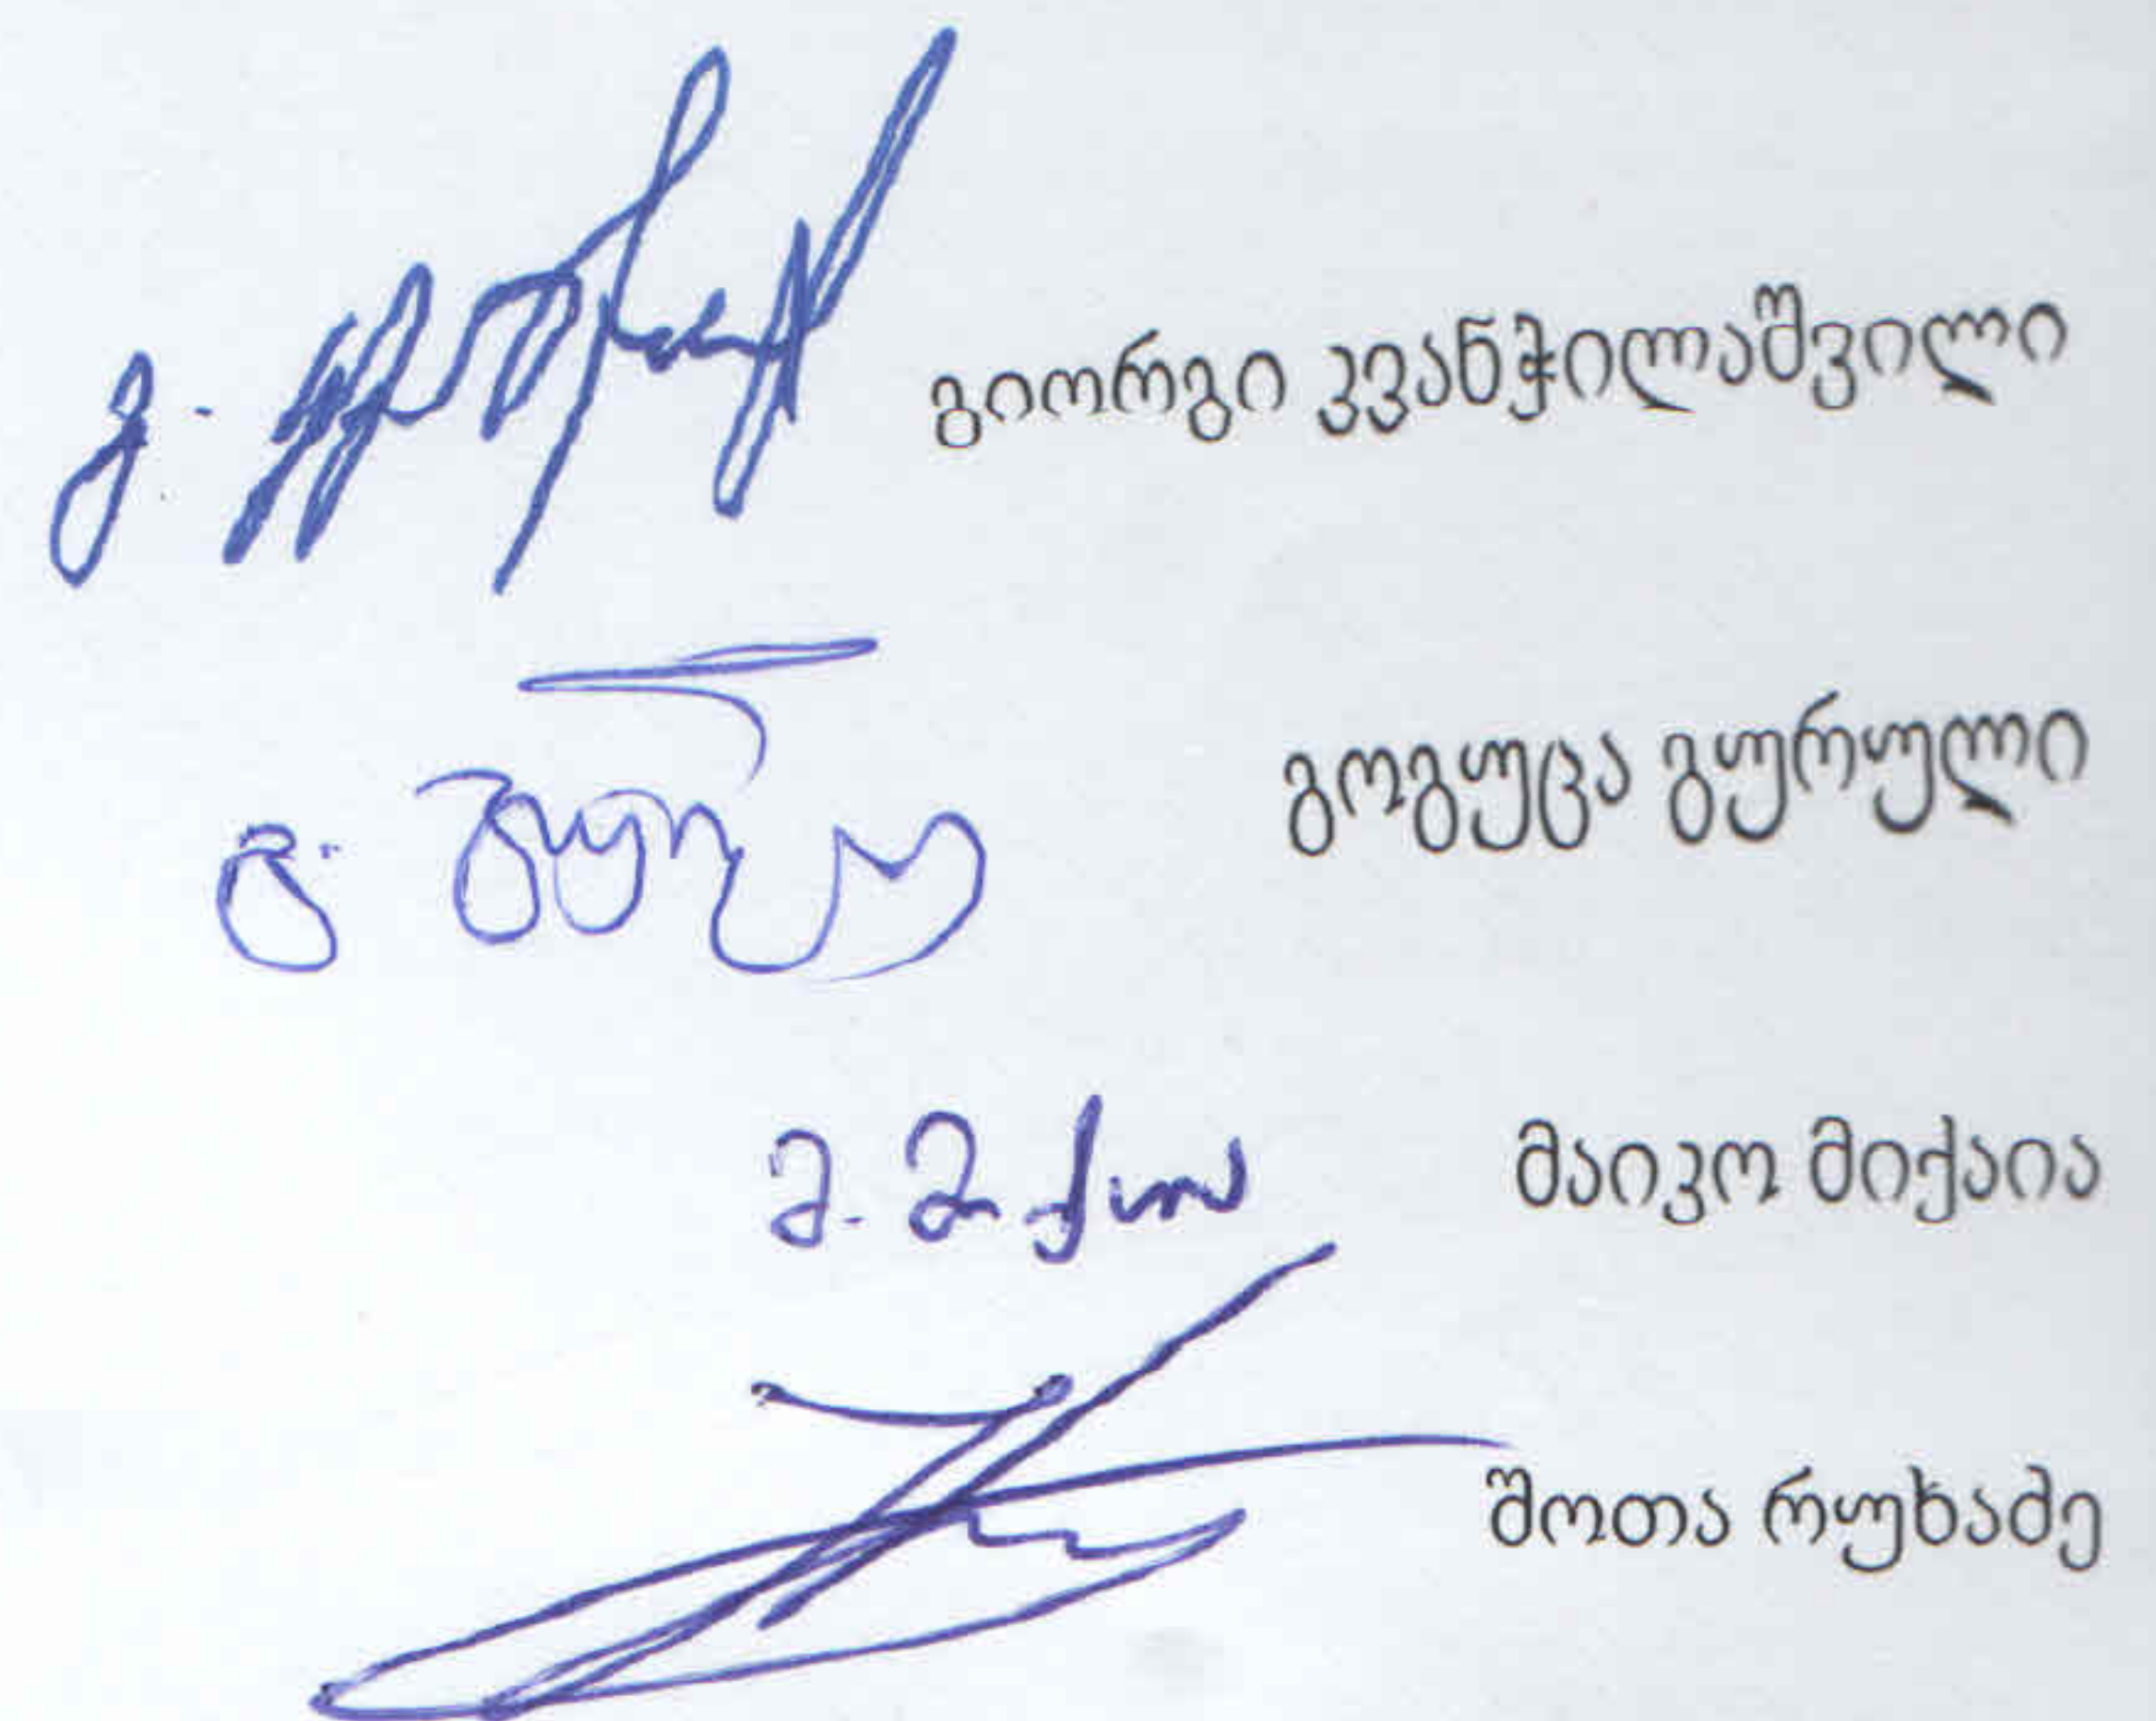 გიორგი კვანჭილაშვილი
გ. გურული
გოგუცა გურული
მ. მიქაია
მაიკო მიქაია
შოთა რუხაძე